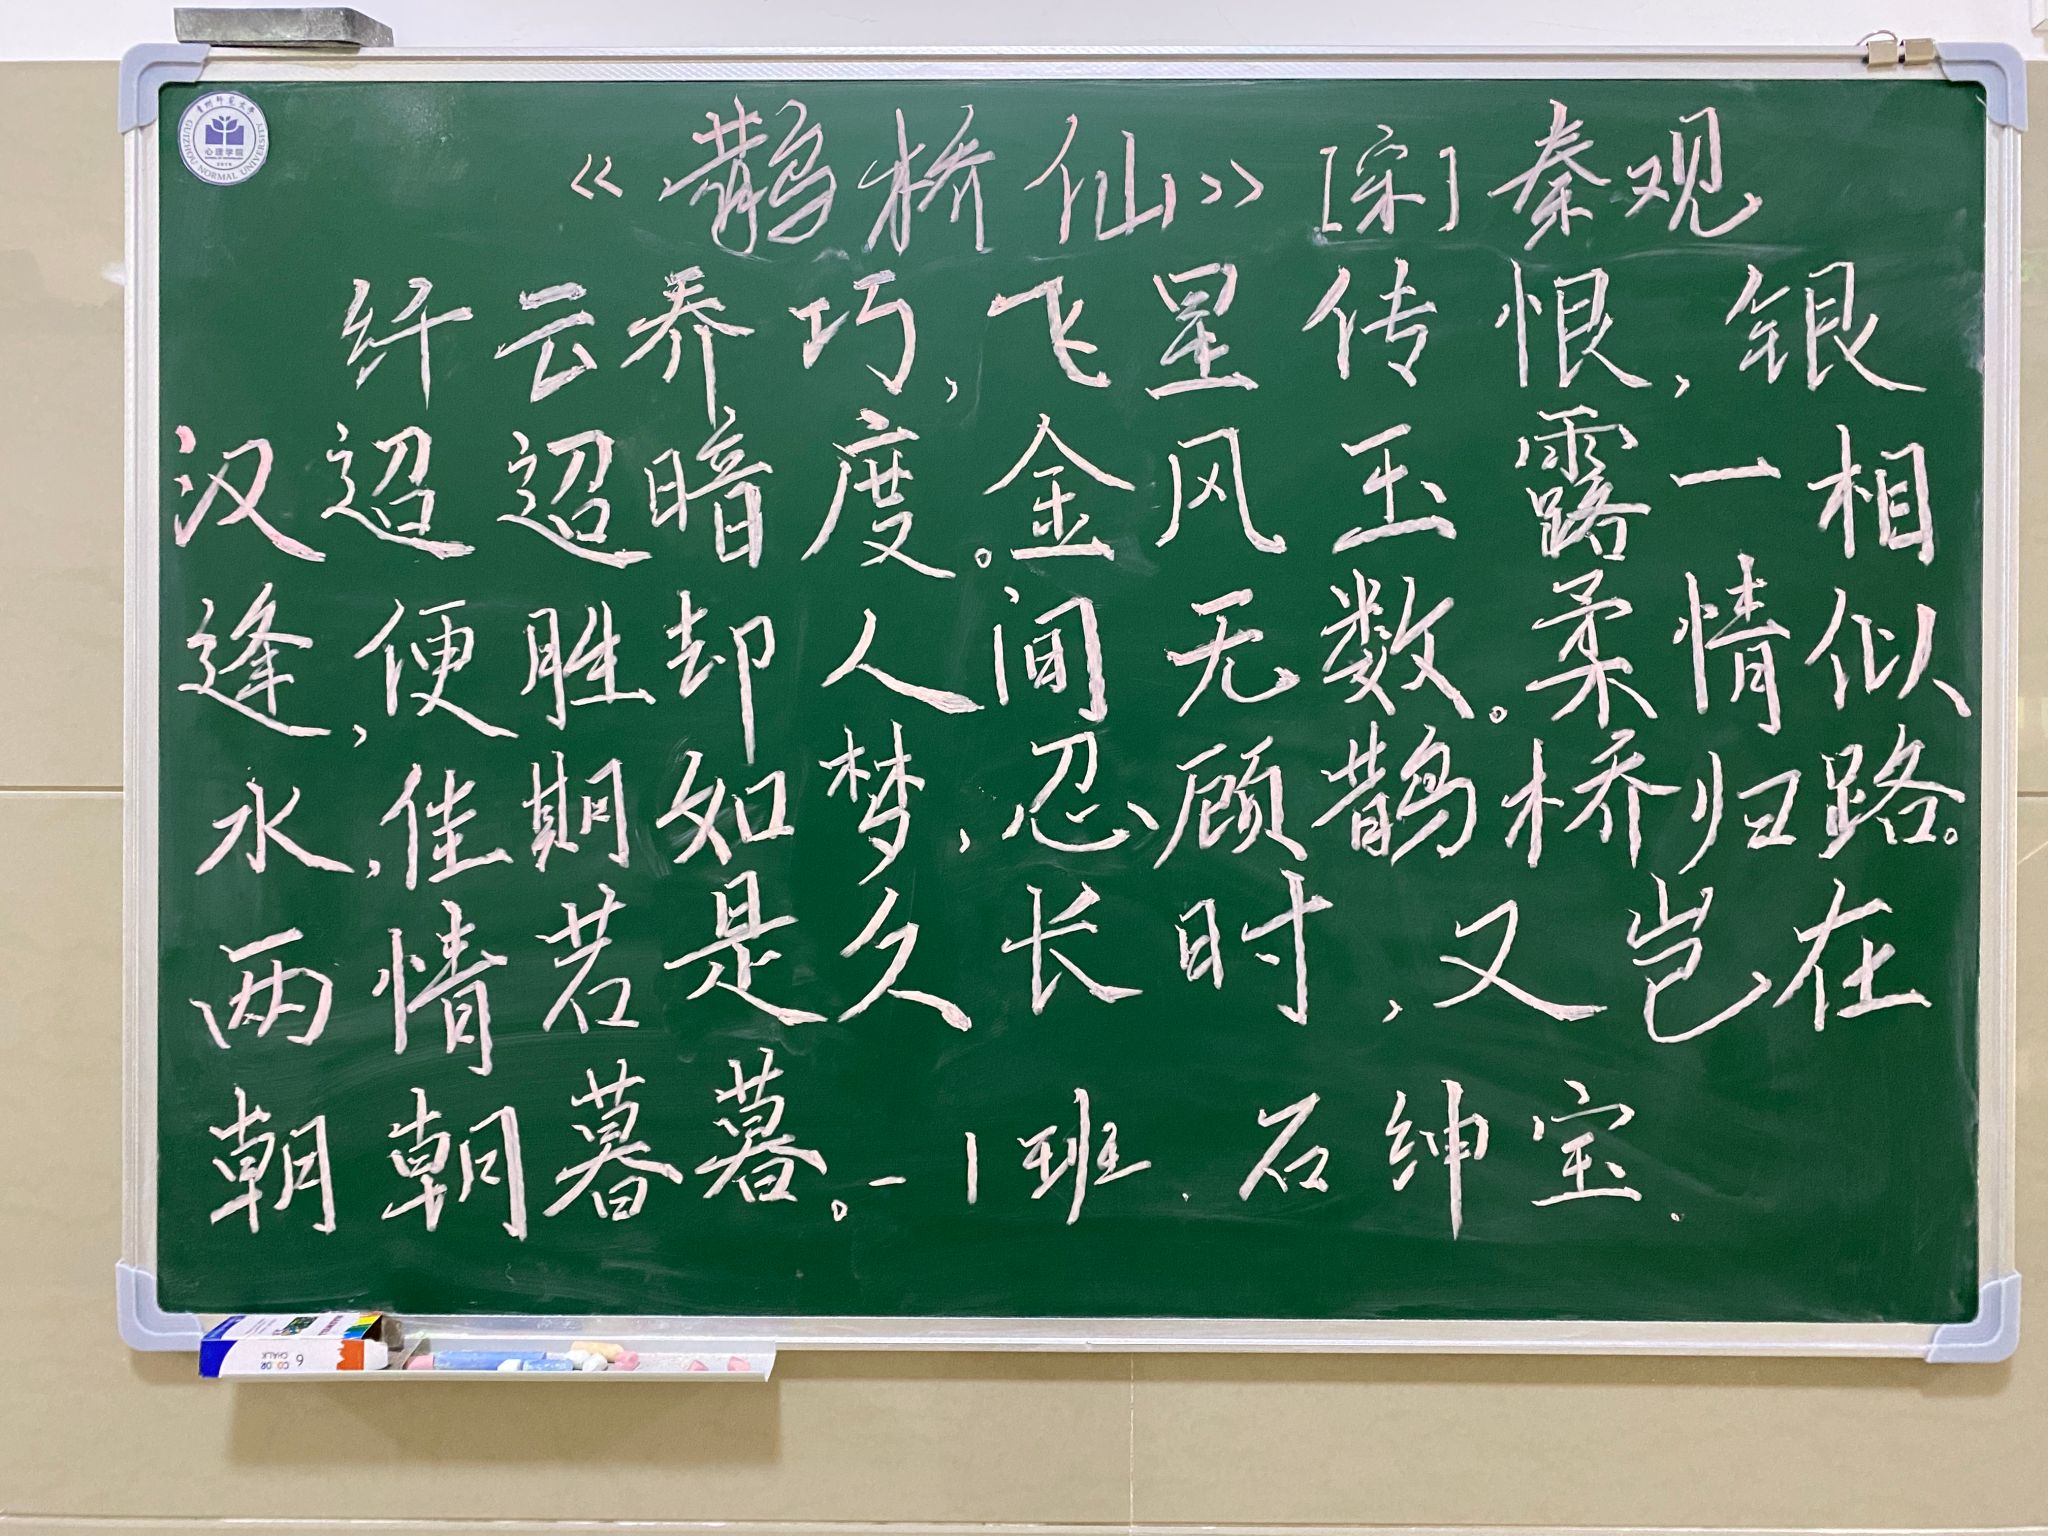 《鹊桥仙》[宋]秦观
纤云养巧,飞星传恨,银
汉迢迢暗度。金风玉露一相
逢,便胜却人间无数。柔情似
水,佳期如梦,忍顾鹊桥归路。
两情若是久长时,又岂在
朝朝暮暮。-1班.石绅宝.
贵州师范大学
心理学院
GUIZHOU NORMAL UNIVERSITY
COLOR
CHALK
6